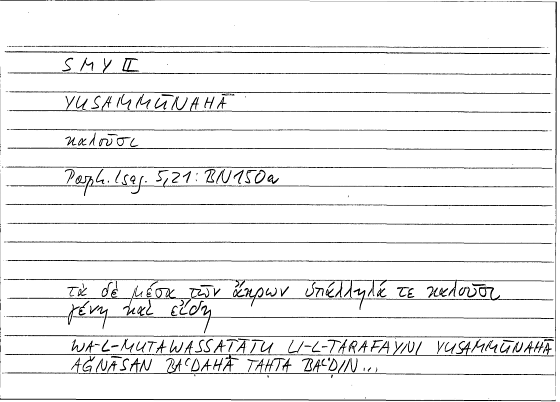 SMY II
YUSAMMŪNAHĀ
καλοῦσι
Porph. Isag. 5,21: BN150a
τὰ δὲ μέσα τῶν ἄκρων ὑπάλληλά τε καλοῦσι
γένη καὶ εἴδη
WA-L-MUTAWASSAṬĀTU LI-L-ṬARAFAYNI YUSAMMŪNAHĀ
AǦNĀSAN BAʿḌAHĀ TAḤTA BAʿḌIN...